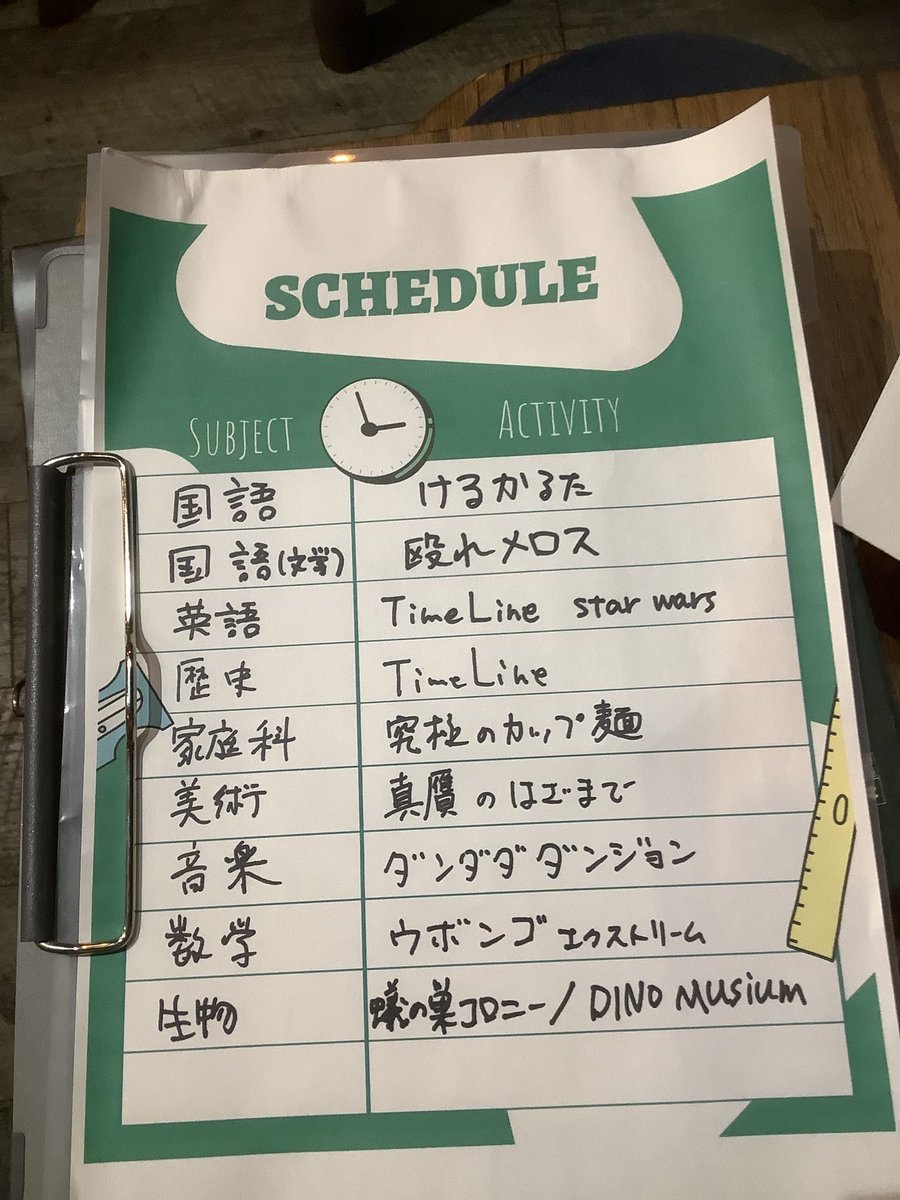 SCHEDULE
SUBJECT ACTIVITY
国語 けるかるた
国語(文学) 殴れメロス
英語 TimeLine star wars
歴史 TimeLine
家庭科 究極のカップ麺
美術 真贋のはざまで
音楽 ダンダダダンジョン
数学 ウボンゴ エクストリーム
生物 蟻の巣コロニー/DINO MUSium
0